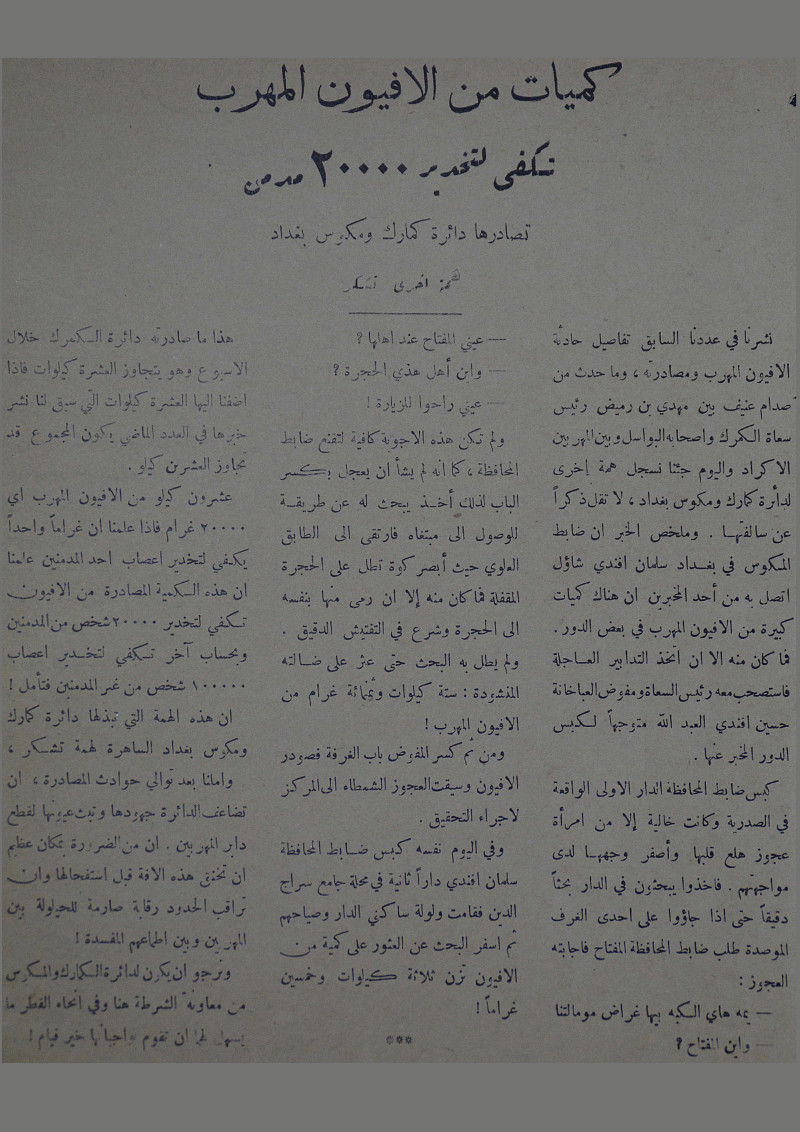 كميات من الافيون المهرب
تكفي لتخدير ٢٠٠٠٠ مدمن
تصادرها دائرة كمارك ومكوس بغداد
همة اخرى تشكر
نشرنا في عددنا السابق تفاصيل حادثة
الافيون المهرب ومصادرته ، وما حدث من
صدام عنيف بين مهدي بن رميض رئيس
سعاة الكمرك واصحابه البواسل وبين المهربين
الاكراد واليوم جئنا نسجل همة اخرى
لدائرة كمارك ومكوس بغداد ، لا تقل ذكراً
عن سالفتها . وملخص الخبر ان ضابط
المكوس في بغداد سلمان افندي شاؤل
اتصل به من أحد المخبرين ان هناك كميات
كبيرة من الافيون المهرب في بعض الدور .
فما كان منه الا ان اتخذ التدابير العاجلة
فاستصحب معه رئيس السعاة ومفوض العباخانة
حسين افندي العبد الله متوجهاً لكبس
الدور المخبر عنها .
كبس ضابط المحافظة الدار الاولى الواقعة
في الصدرية وكانت خالية إلا من امرأة
عجوز هلع قلبها وأصفر وجهها لدى
مواجهتهم . فاخذوا يبحثون في الدار بحثاً
دقيقاً حتى اذا جاؤوا على احدى الغرف
الموصدة طلب ضابط المحافظة المفتاح فاجابته
العجوز :
— يمه هاي الكبه بيها غراض مومالتنا
— واين المفتاح ؟
— عيني المفتاح عند اهلها ؟
— واين أهل هذي الحجرة ؟
— عيني راحوا للزيارة !
ولم تكن هذه الاجوبة كافية لتقنع ضابط
المحافظة ، كما انه لم يشأ ان يعجل بكسر
الباب لذلك أخذ يبحث له عن طريقة
للوصول الى مبتغاه فارتقى الى الطابق
العلوي حيث أبصر كوة تطل على الحجرة
المقفلة فما كان منه إلا ان رمى منها بنفسه
الى الحجرة وشرع في التفتيش الدقيق .
ولم يطل به البحث حتى عثر على ضالته
المنشودة : ستة كيلوات وثمانمائة غرام من
الافيون المهرب !
ومن ثم كسر المفوض باب الغرفة فصودر
الافيون وسيقت العجوز الشمطاء الى المركز
لاجراء التحقيق .
وفي اليوم نفسه كبس ضابط المحافظة
سلمان افندي داراً ثانية في محلة جامع سراج
الدين فقامت ولولة ساكني الدار وصياحهم
ثم اسفر البحث عن العثور على كمية من
الافيون تزن ثلاثة كيلوات وخمسين
غراماً !
***
هذا ما صادرته دائرة الكمرك خلال
الاسبوع وهو يتجاوز العشرة كيلوات فاذا
اضفنا اليها العشرة كيلوات التي سبق لنا نشر
خبرها في العدد الماضي يكون المجموع قد
تجاوز العشرين كيلو .
عشرون كيلو من الافيون المهرب اي
٢٠٠٠٠ غرام فاذا علمنا ان غراماً واحداً
يكفي لتخدير اعصاب احد المدمنين علمنا
ان هذه الكمية المصادرة من الافيون
تكفي لتخدير ٢٠٠٠٠ شخص من المدمنين
وبحساب آخر تكفي لتخدير اعصاب
١٠٠٠٠٠ شخص من غير المدمنين فتأمل !
ان هذه الهمة التي تبذلها دائرة كمارك
ومكوس بغداد الساهرة لهمة تشكر ،
واملنا بعد توالي حوادث المصادرة ، ان
تضاعف الدائرة جهودها وتبث عيونها لقطع
دابر المهربين . ان من الضرورة بمكان عظيم
ان تختنق هذه الافة قبل استفحالها وان
تراقب الحدود رقابة صارمة للحيلولة بين
المهربين وبين اطماعهم المفسدة !
ونرجو ان يكون لدائرة الكمارك والمكوس
من معاونة الشرطة هنا وفي انحاء القطر ما
يسهل لها ان تقوم بواجباتها خير قيام !